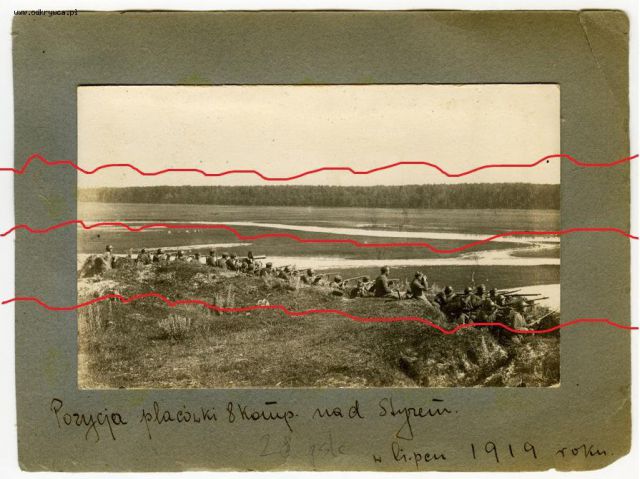 www.odkrywca.pl
Pozycja placówki 8 Komp. nad Styrem.
28 pstk
w lipcu 1919 roku.